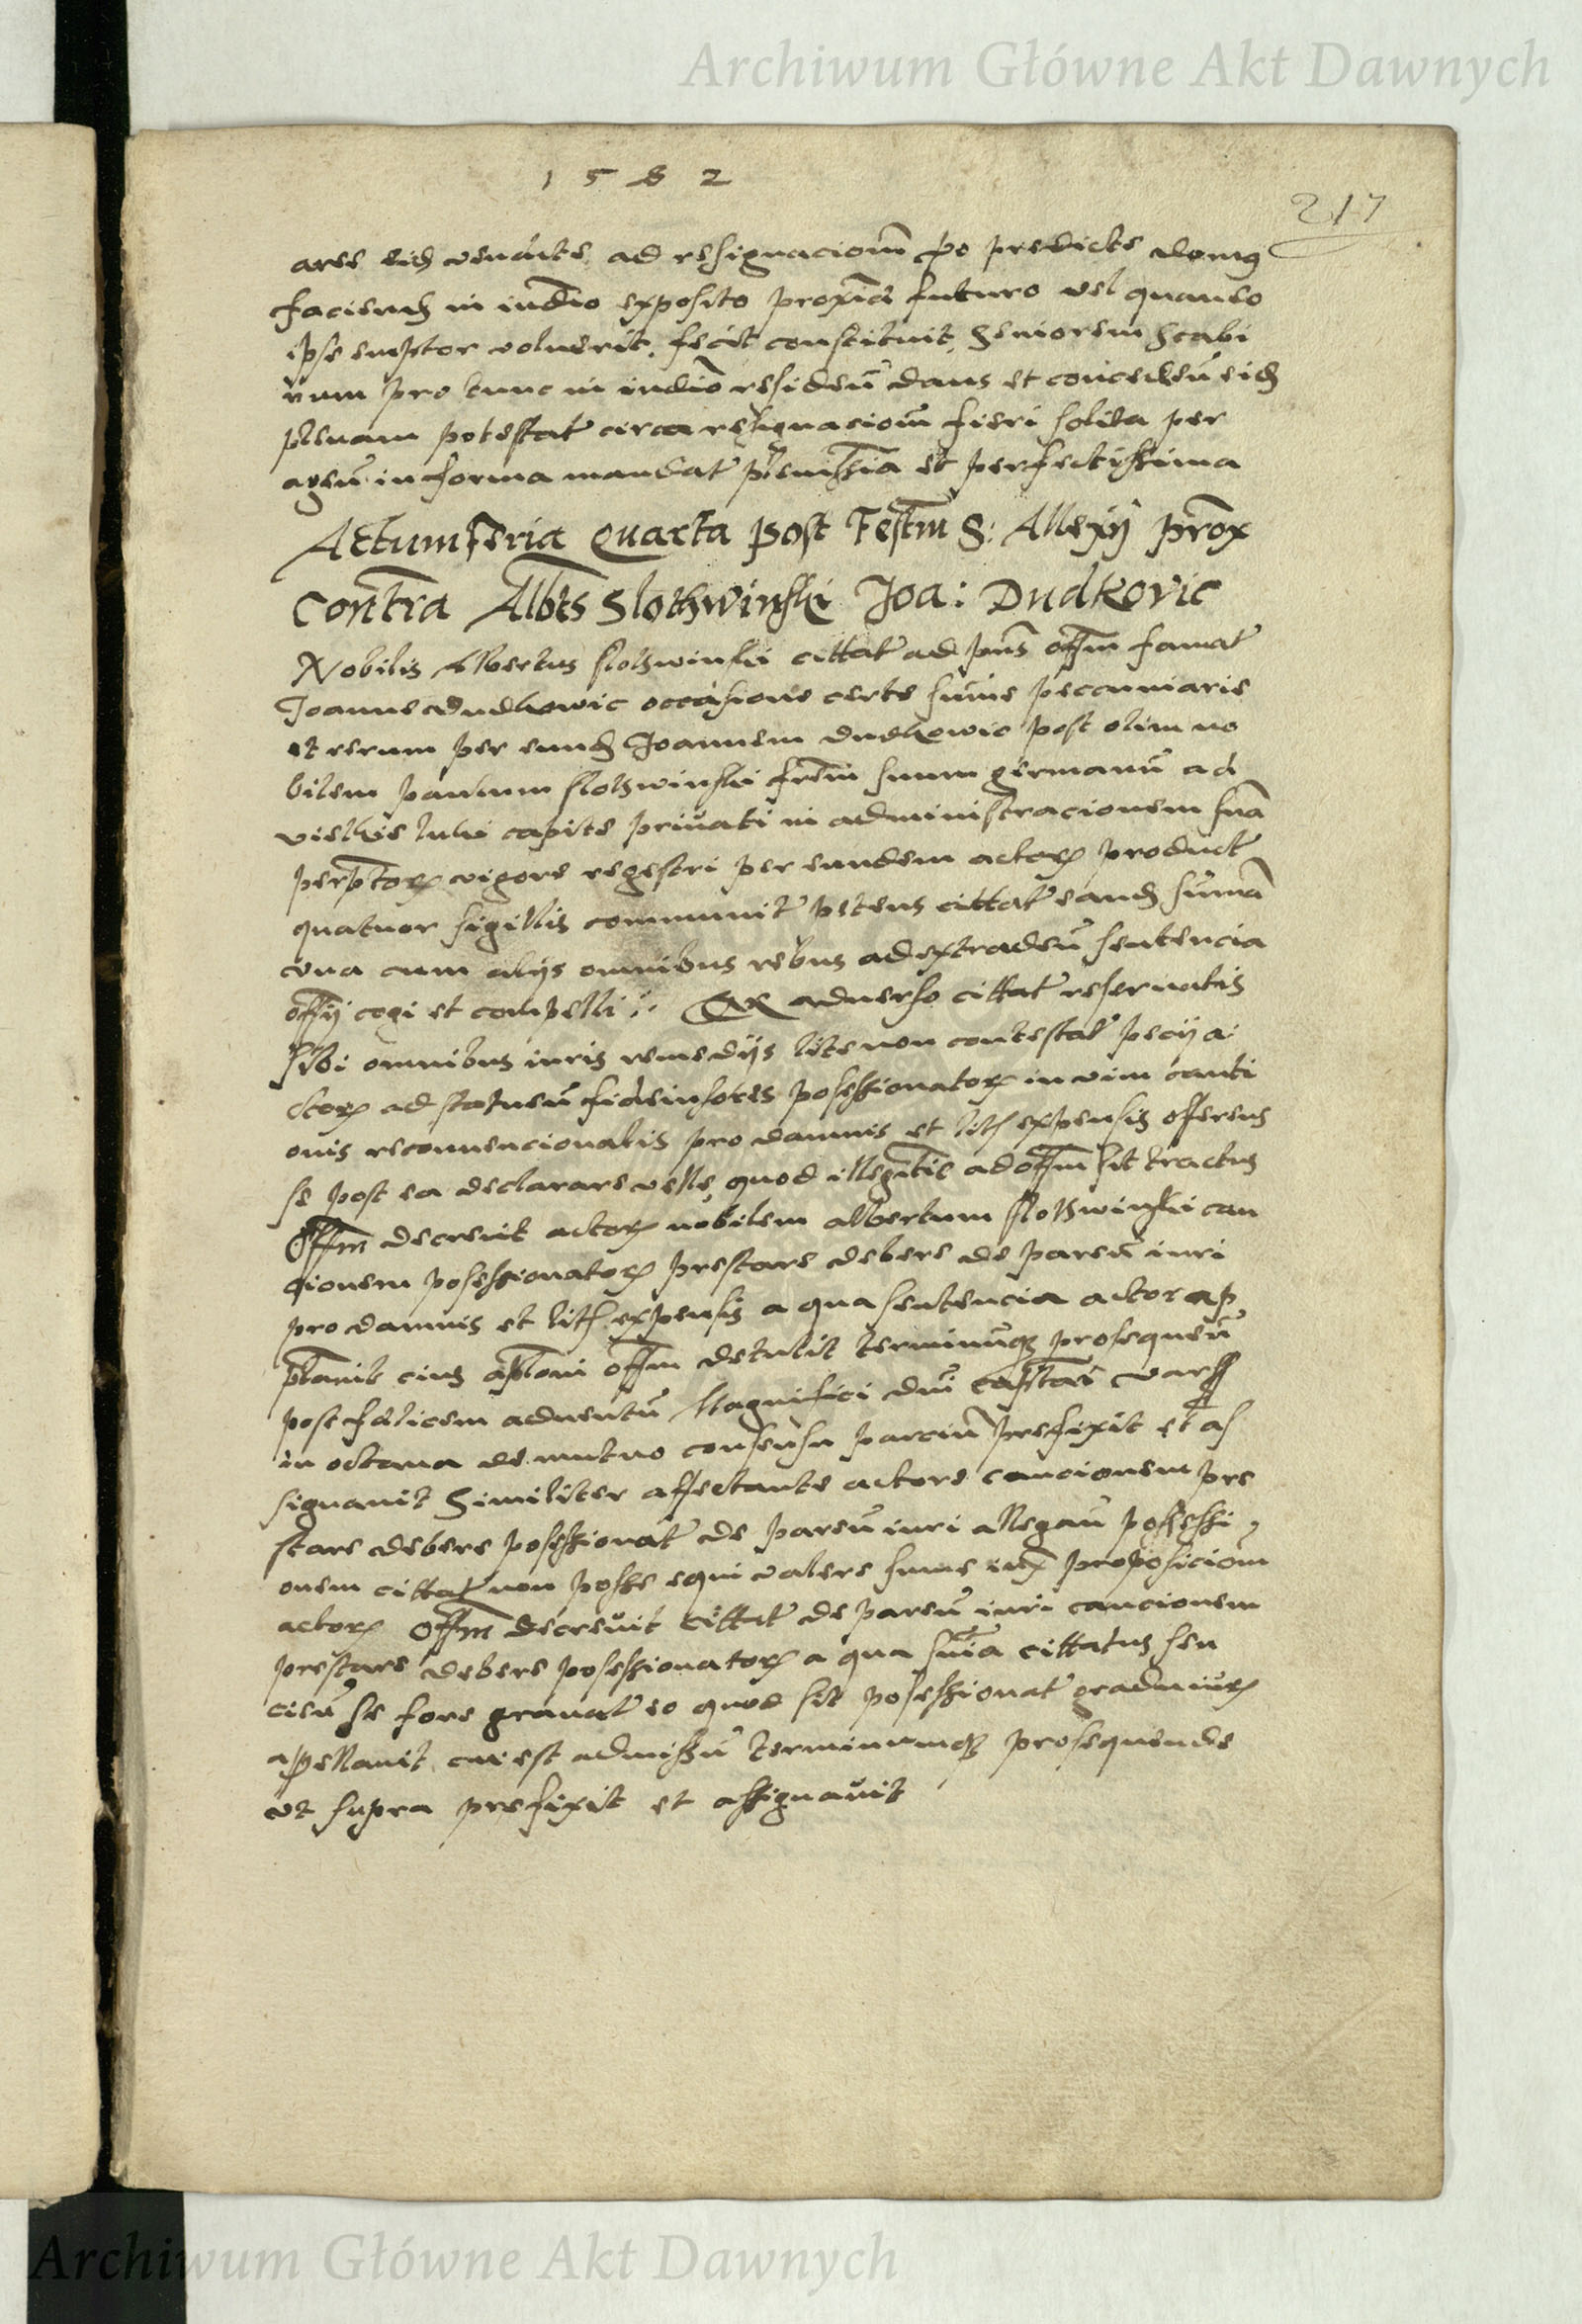 Archiwum Główne Akt Dawnych
1582
217
aree eidē vendite ad resignacionē p̄o predicte domꝯ
faciendā in iudīo exposito proximē futuro vel quando
ipse emptor voluerit, fecit constituit Seniorem Scabi
num pro tunc in iudīo residen̄ dans et conceden̄ eidē
plenam potestatē circa resignacionē fieri solita per
agen̄ in forma mandati plenissīa et perfectissima
Actum Feria Quarta post Festm̄ S: Allexij prox̄
Contra Albēs Slothwinski Joa: Dudkovic
Nobilis Albertus slothwinski cittat̄ ad pn̄s offm̄ famat̄
Joannē Dudkowic occasione certe sum̄e peccuniarie
et rerum per eundē Joannem dudkowic post olim no
bilem paulum slothwinski frem̄ suum germanū ad
vielkie luki capite privati in administracionem suā
perptorꝝ vigore regestri per eundem actorꝝ product̄
quatuor sigillis communit̄ petens cittat̄ eandē sum̄ā
una cum alijs omnibus rebus ad extraden̄ sentencia
offij cogi et compelli Ex adverso cittat̄ reservatis
sibi omnibus iuris remedijs lite non contestat̄ pecij a
ctorꝝ ad statuen̄ fideiussores possessionatorꝝ in vim cauti
onis reconvencionalis pro damnis et litis expensis offerens
se post ea declarare velle, quod illegittīe ad offm̄ sit tractus
Offm̄ decrevit actorꝝ nobilem albertum slothwinski cau
cionem possessionatorꝝ prestare debere de paren̄ iuri
pro damnis et litis expensis a qua sentencia actor ap
pl̄avit cius apl̄oni offm̄ detulit terminumqꝫ prosequen̄
post felicem adventū Magnifici dni capitanei vars
in octava de mutuo consensu parciū prefixit et as
signavit Similiter affectante actore caucionem pre
stare debere possessionat̄ de paren̄ iuri allegan̄ possessi
onem cittat̄ non posse equi valere sum̄e iuxta proposicionē
actorꝝ Offm̄ decrevit cittat̄ de paren̄ iuri caucionem
prestare debere possessionatorꝝ a qua sn̄ia cittatus sen
cien̄ se fore gravat̄ eo quod sit possessionat̄
appellavit cui est admissū terminumqꝫ prosequende
ut supra prefixit et assignavit
Archiwum Główne Akt Dawnych